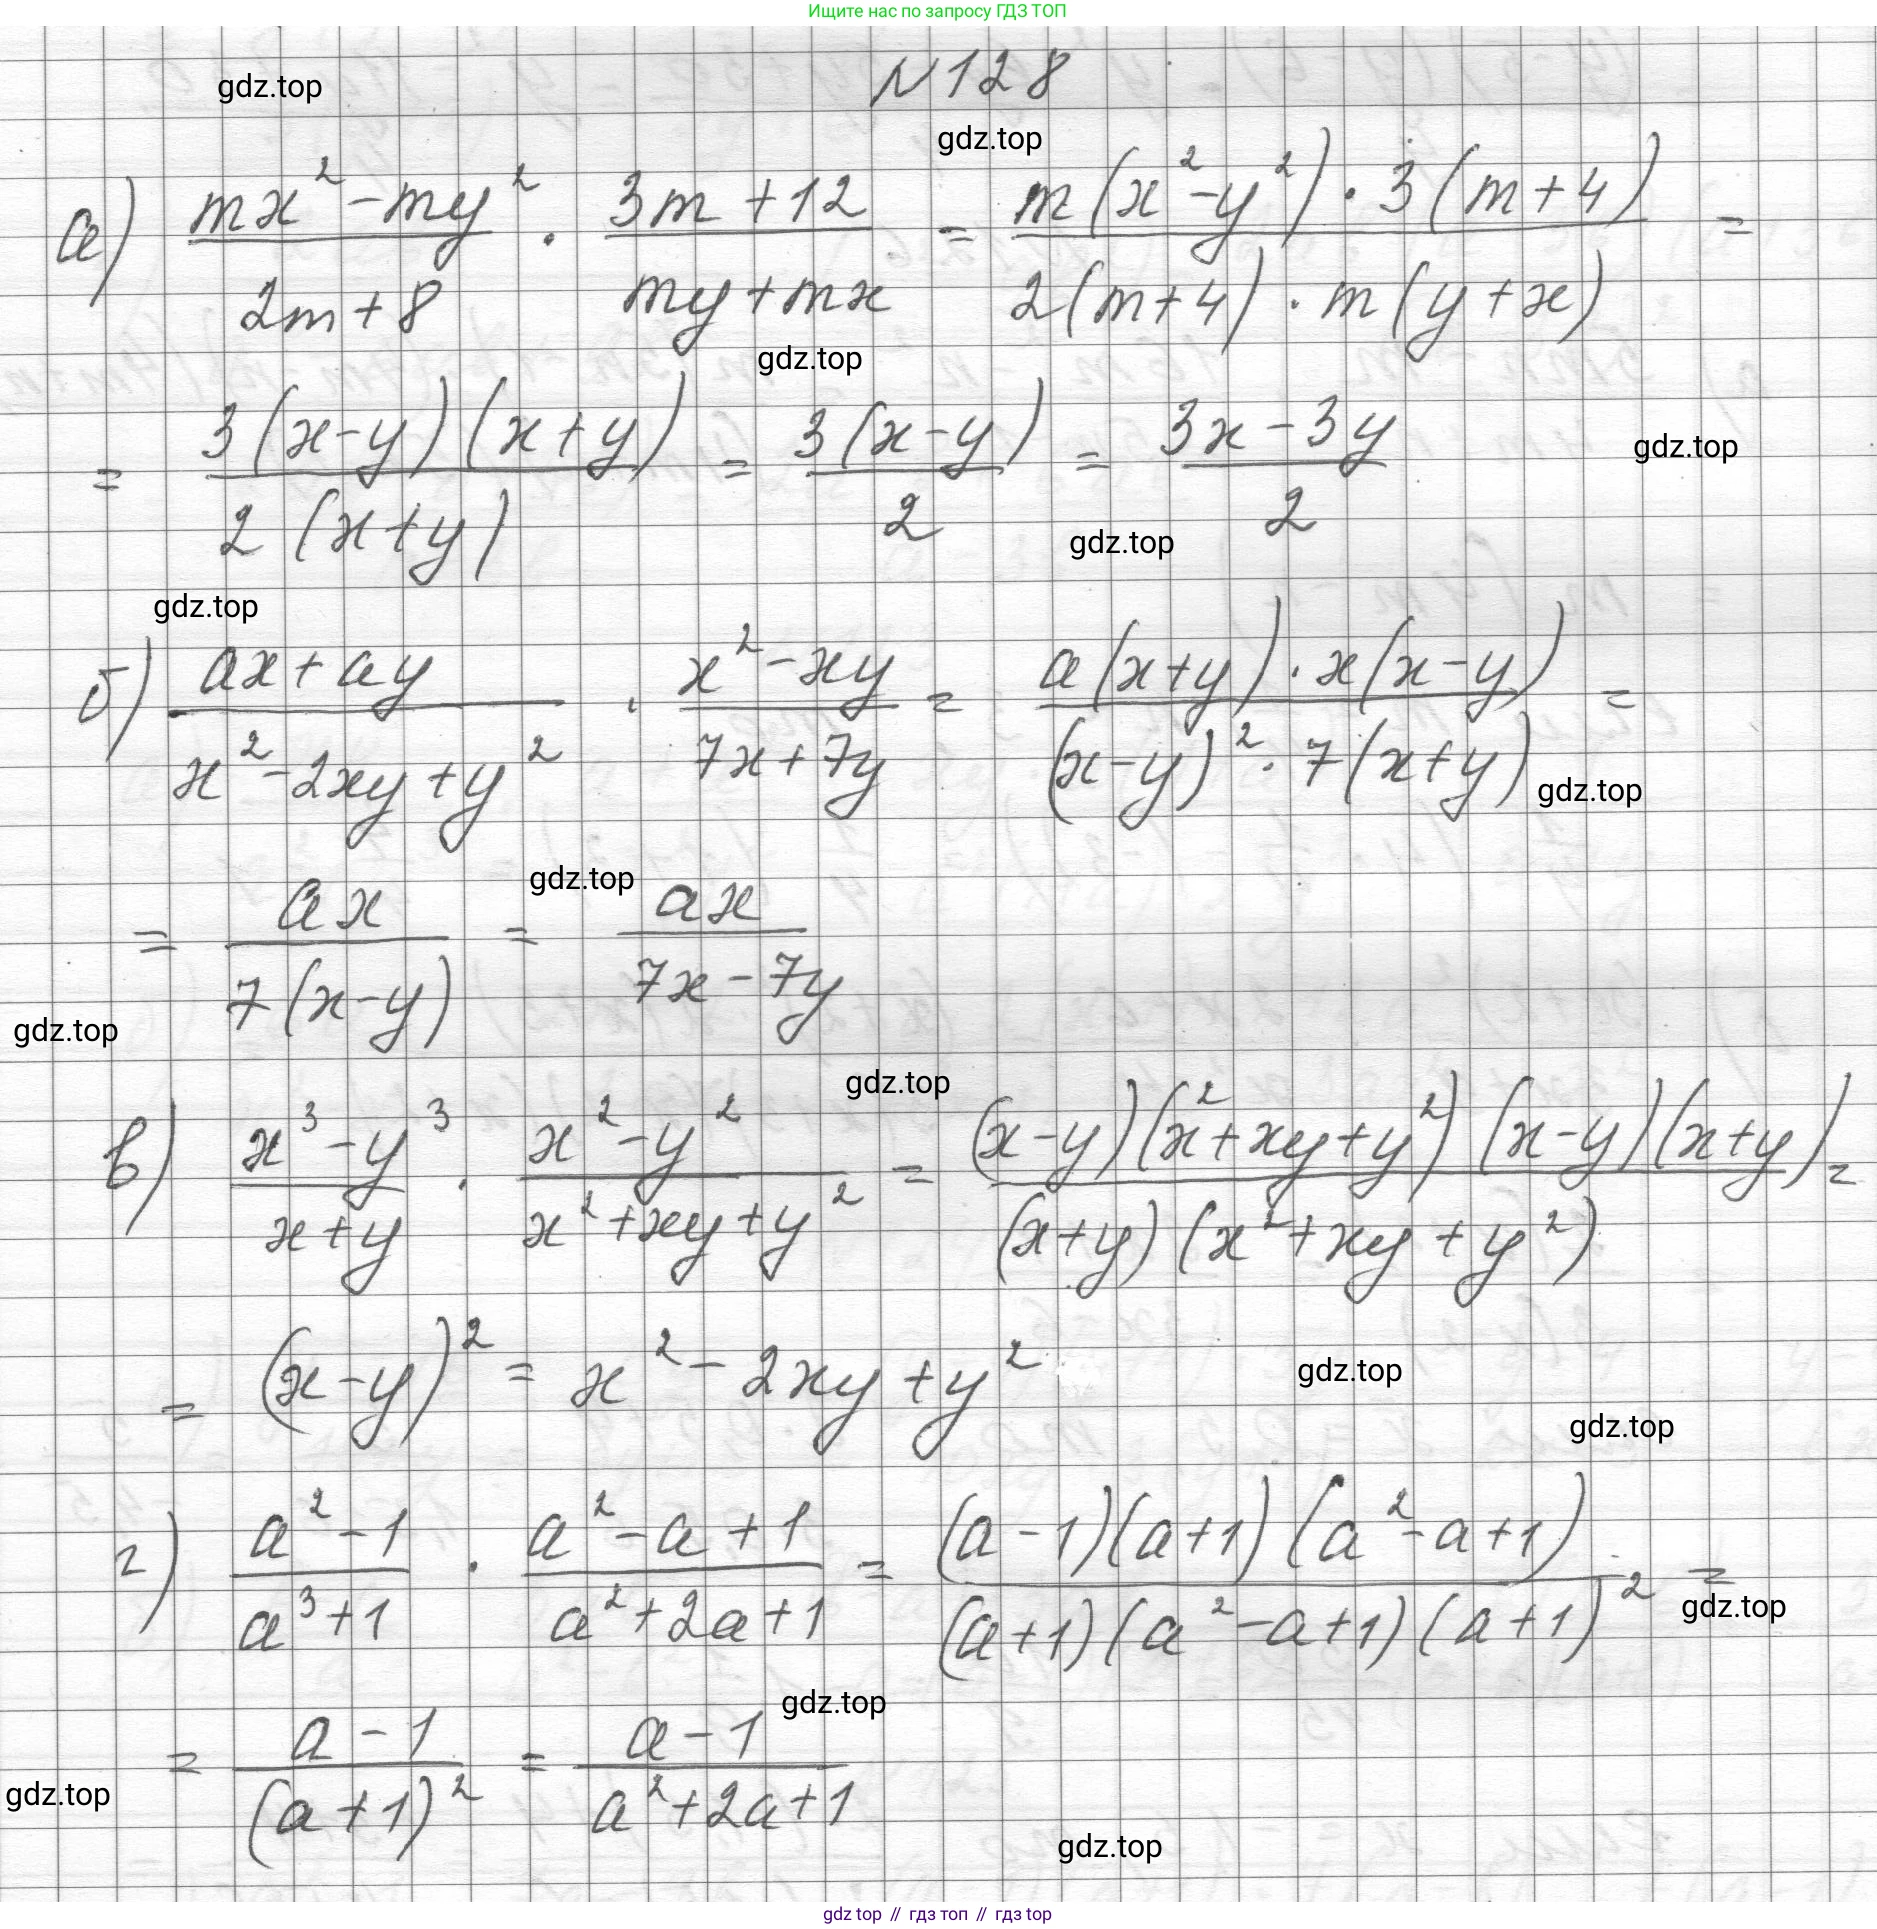 Ищите нас по запросу ГДЗ ТОП
N 128
gdz.top
gdz.top
а) (mx² - my²)/(2m + 8) · (3m + 12)/(my + mx) = (m(x² - y²) · 3(m + 4))/(2(m + 4) · m(y + x)) =
gdz.top
= (3(x - y)(x + y))/(2(x + y)) = (3(x - y))/2 = (3x - 3y)/2
gdz.top
gdz.top
gdz.top
б) (ax + ay)/(x² - 2xy + y²) · (x² - xy)/(7x + 7y) = (a(x + y) · x(x - y))/((x - y)² · 7(x + y)) =
gdz.top
gdz.top
= ax/(7(x - y)) = ax/(7x - 7y)
gdz.top
gdz.top
в) (x³ - y³)/(x + y) · (x² - y²)/(x² + xy + y²) = ((x - y)(x² + xy + y²)(x - y)(x + y))/((x + y)(x² + xy + y²)) =
= (x - y)² = x² - 2xy + y²
gdz.top
gdz.top
г) (a² - 1)/(a³ + 1) · (a² - a + 1)/(a² + 2a + 1) = ((a - 1)(a + 1)(a² - a + 1))/((a + 1)(a² - a + 1)(a + 1)²) =
gdz.top
gdz.top
= (a - 1)/((a + 1)²) = (a - 1)/(a² + 2a + 1)
gdz.top
gdz.top
gdz top // гдз топ // гдз top